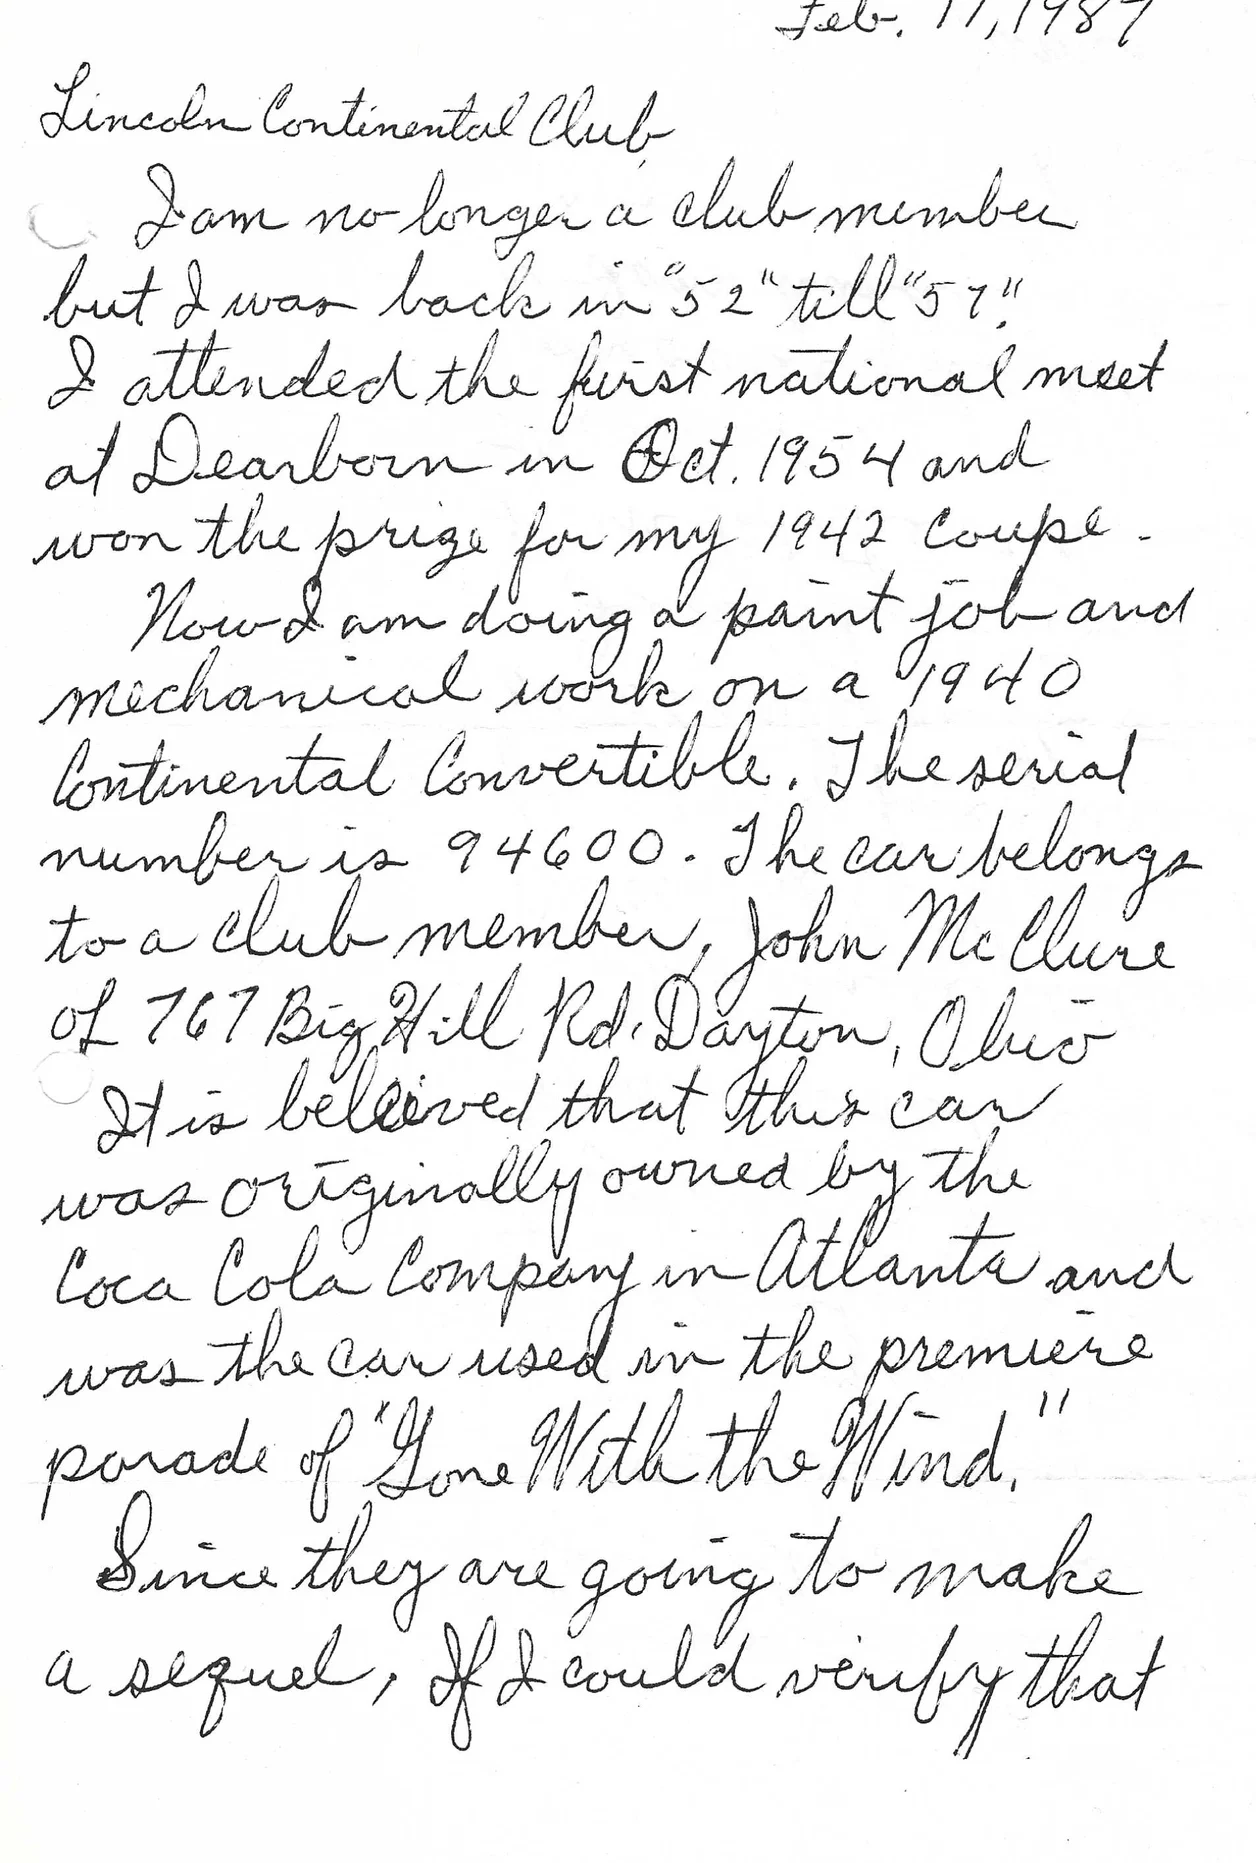 Feb. 17, 1987
Lincoln Continental Club,
I am no longer a club member
but I was back in "52" till "57".
I attended the first national meet
at Dearborn in Oct. 1954 and
won the prize for my 1942 Coupe.
Now I am doing a paint job and
mechanical work on a 1940
Continental Convertible. The serial
number is 94600. The car belongs
to a club member, John McClure
of 767 Big Hill Rd. Dayton, Ohio
It is beleived that this car
was originally owned by the
Coca Cola Company in Atlanta and
was the car used in the premiere
parade of "Gone With the Wind."
Since they are going to make
a sequel, If I could verify that